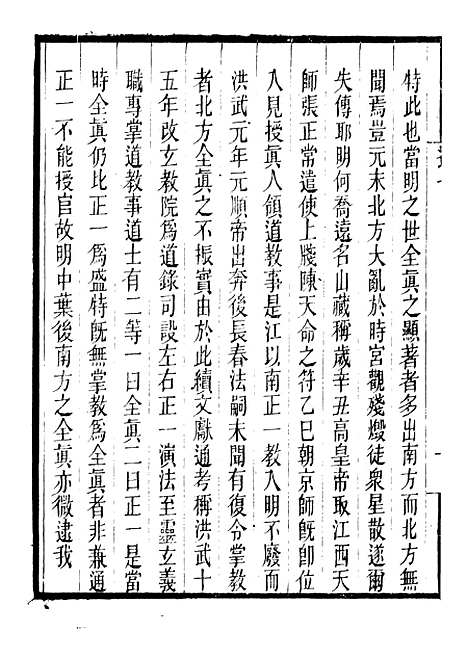 特此也當明之世全眞之顯著者多出南方而北方無
聞焉豈元末北方大亂於時宮觀殘燬徒衆星散遂爾
失傳耶明何喬遠名山藏稱歲辛丑高皇帝取江西天
師張正常遣使上牋陳天命之符乙巳朝京師旣卽位
入見授眞人領道教事是江以南正一教入明不廢而
洪武元年元順帝出奔後長春法嗣未聞有復令掌教
者北方全眞之不振實由於此續文獻通考稱洪武十
五年改玄教院爲道錄司設左右正一演法至靈玄義
職專掌道教事道士有二等一曰全眞二曰正一是當
時全眞仍比正一爲盛特旣無掌教爲全眞者非兼通
正一不能授官故明中葉後南方之全眞亦微逮我